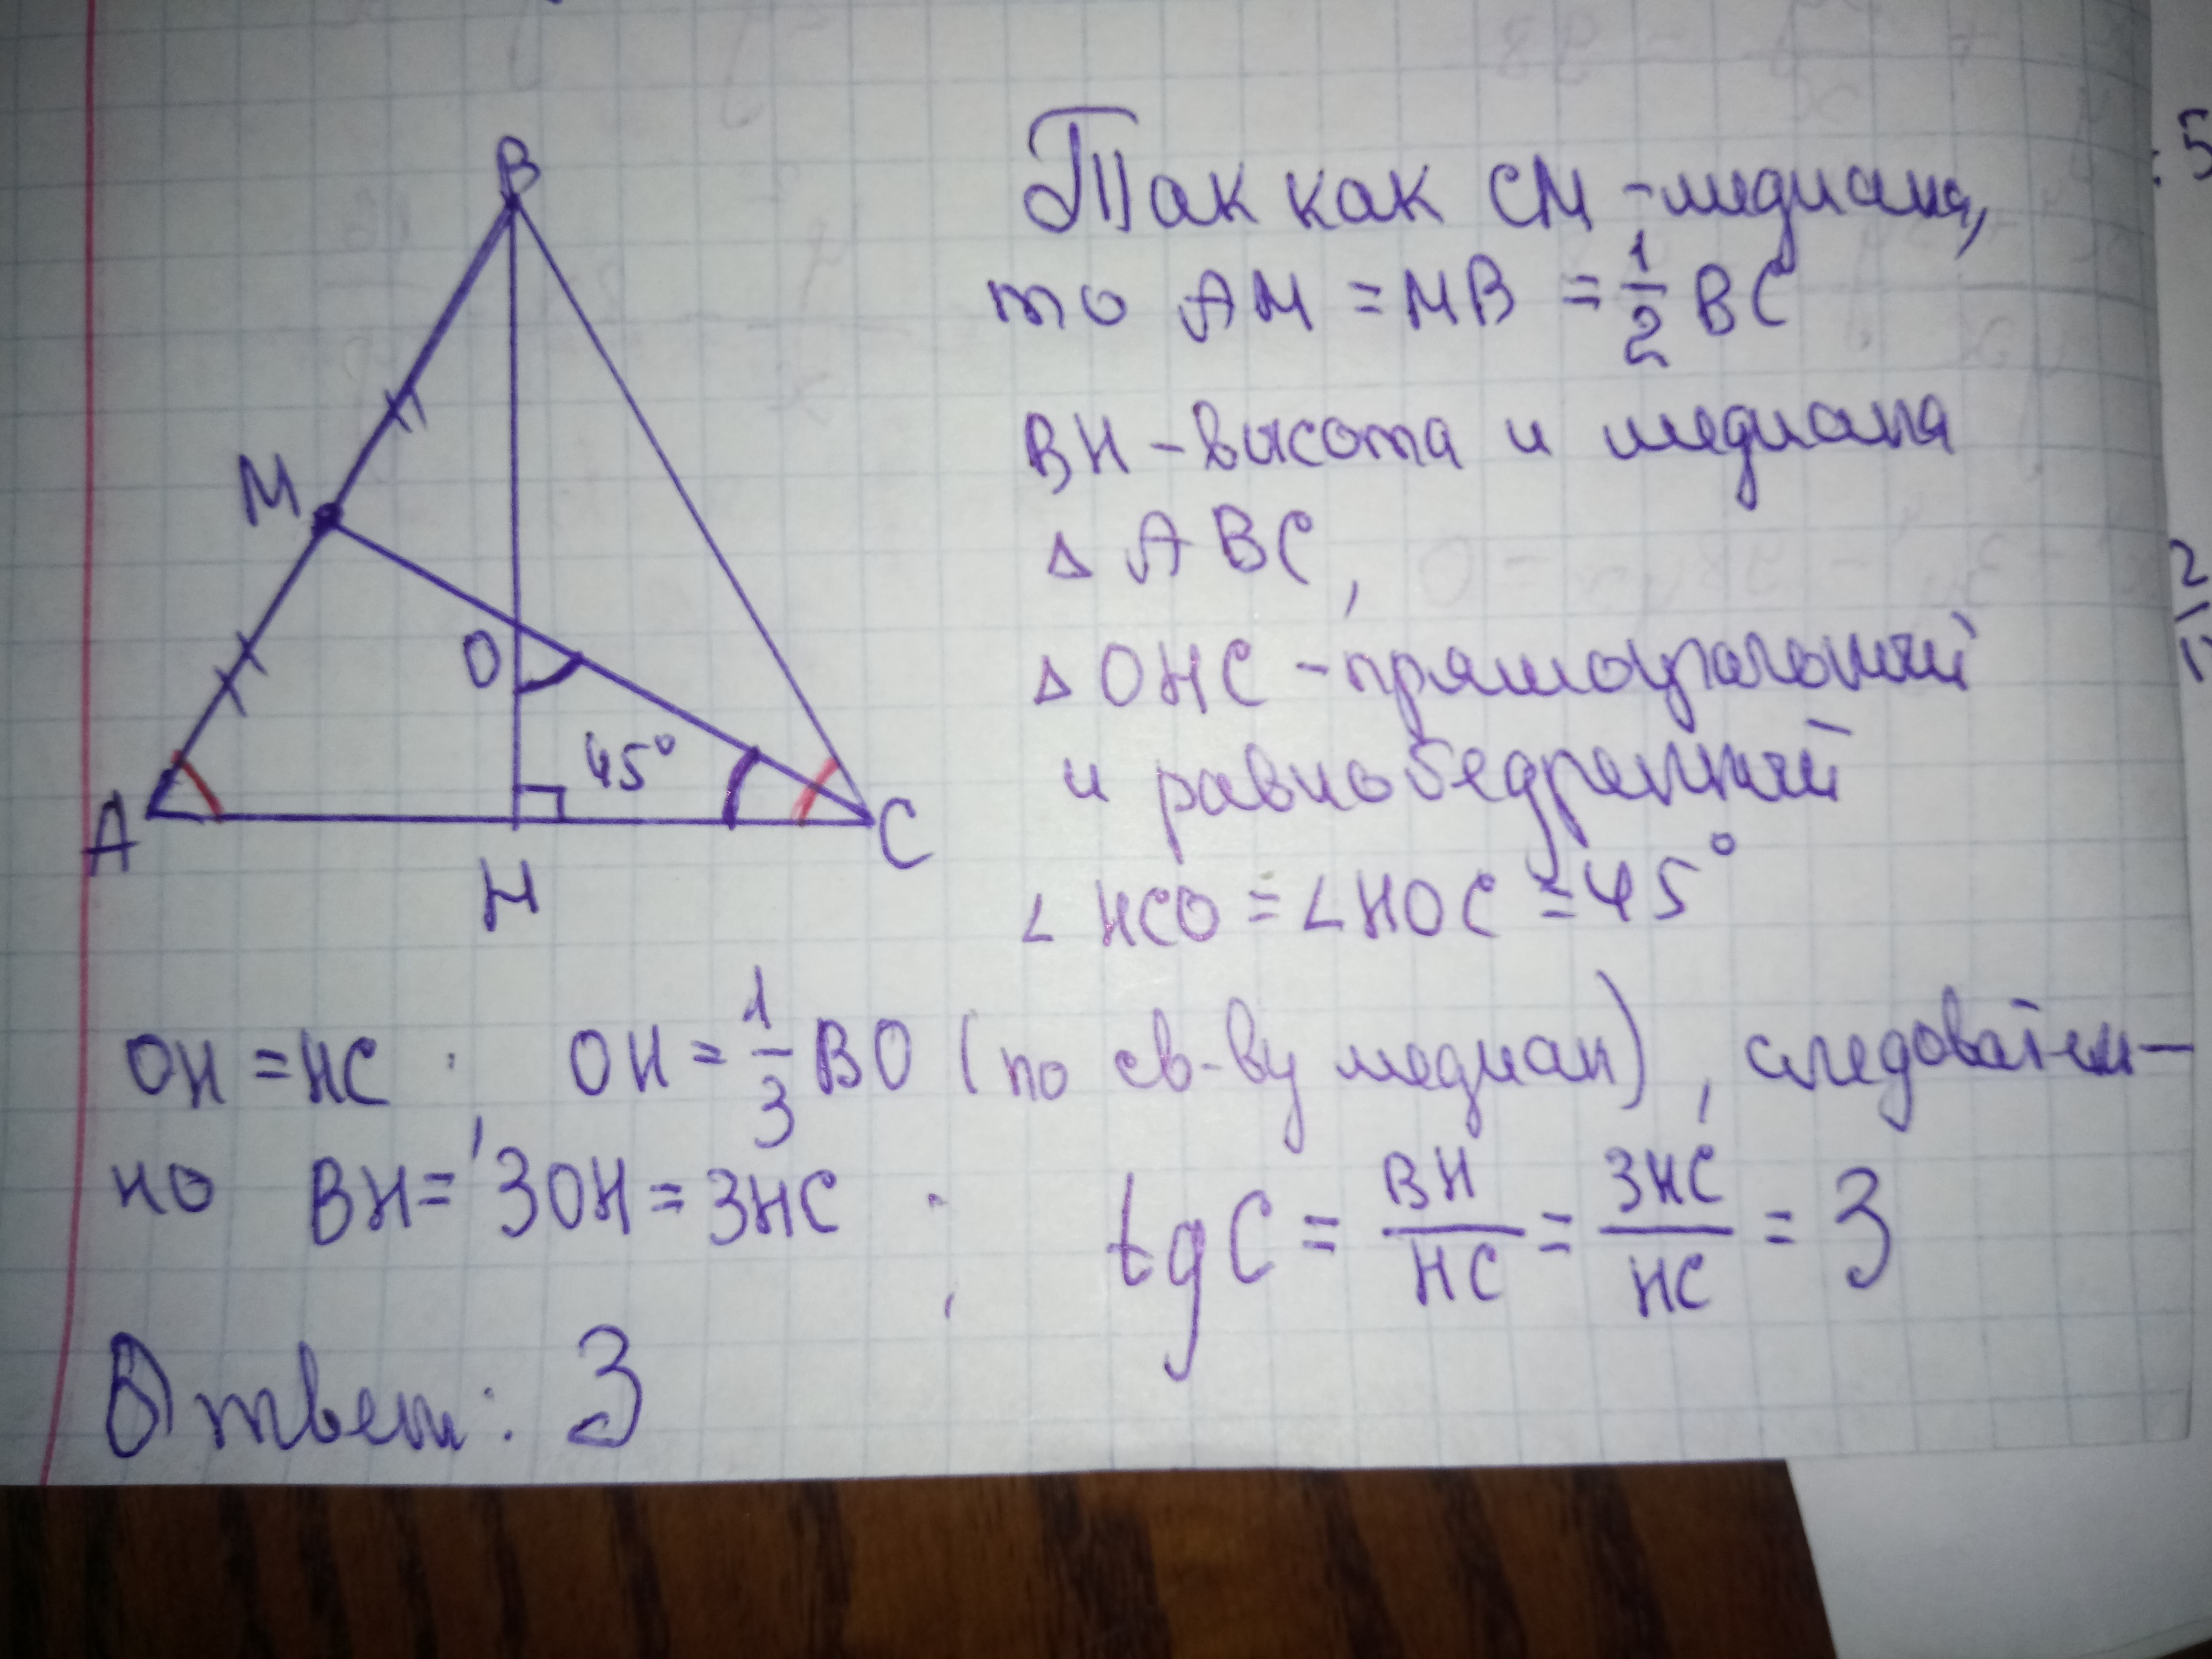 B
Так как CM - медиана,
то AM = MB = 1/2 BC
BH - высота и медиана
M
△ ABC,
△ OHC - прямоугольный
O
и равнобедренный
45°
A
C
H
∠ HCO = ∠ HOC = 45°
OH = HC ; OH = 1/3 BO (по св-ву медиан), следователь-
но BH = 3OH = 3HC ; tg C = BH/HC = 3HC/HC = 3
Ответ: 3
: 5
2